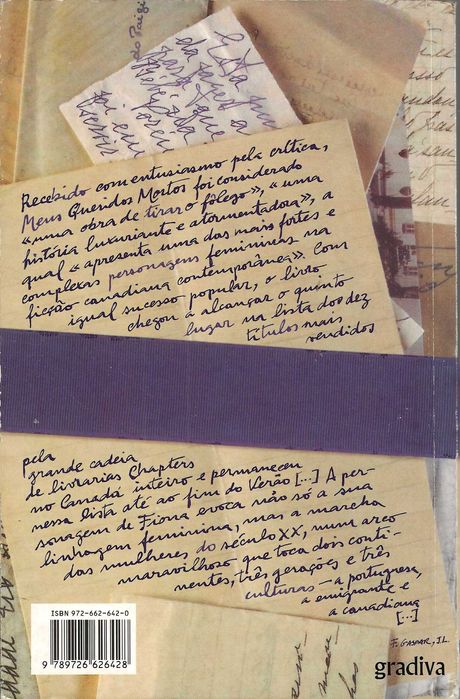 do Paizi
Recebido com entusiasmo pela crítica,
Meus Queridos Mortos foi considerado
«uma obra de tirar o fôlego», «uma
história luxuriante e atormentadora», a
qual «apresenta uma das mais fortes e
complexas personagens femininas na
ficção canadiana contemporânea». Com
igual sucesso popular, o livro
chegou a alcançar o quinto
lugar na lista dos dez
títulos mais
vendidos
pela
grande cadeia
de livrarias Chapters
no Canadá inteiro e permaneceu
nessa lista até ao fim do Verão [...] A per-
sonagem de Fiona evoca não só a sua
linhagem feminina, mas a marcha
das mulheres do século XX, num arco
maravilhoso que toca dois conti-
nentes, três gerações e três
culturas – a portuguesa,
a emigrante e
a canadiana
[...]
F. GASPAR, J.L.
ISBN 972-662-642-0
9 789726 626428
gradiva